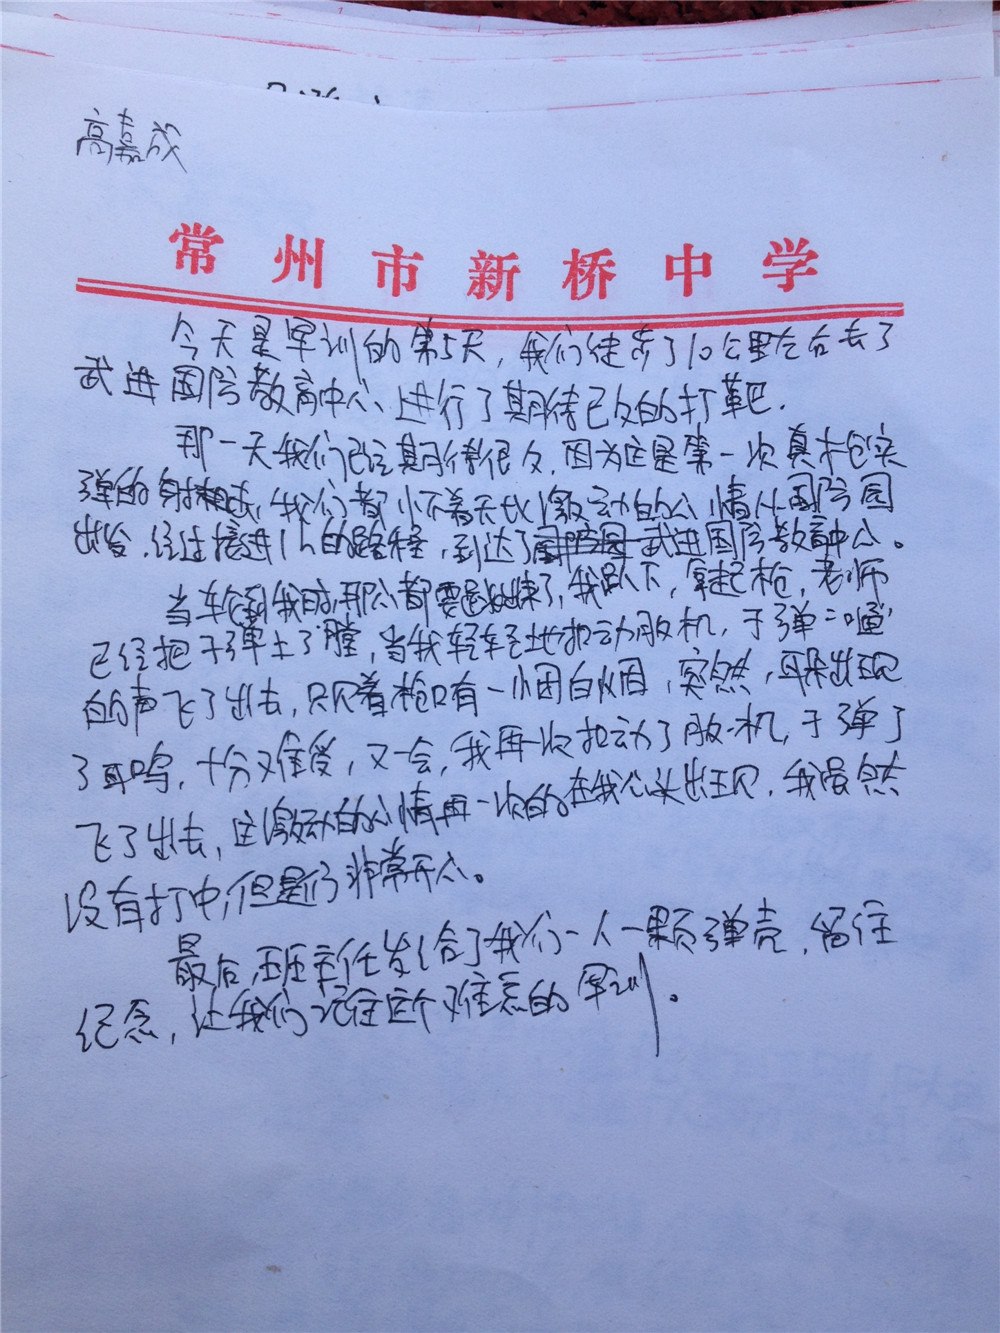 高嘉成
常州市新桥中学
今天是军训的第5天，我们徒步了10公里左右去了
武进国防教育中心，进行了期待已久的打靶.
那一天我们已经期待很久，因为这是第一次真枪实
弹的射击，我们都怀着无比激动的心情从国防园
出发，经过接近1h的路程，到达了武进国防教育中心。
当轮到我时，那心都要跳出来了，我趴下，拿起枪，老师
已经把子弹上了膛，当我轻轻地扣动扳机，子弹"嗵"
的声飞了出去，只见着枪口有一小团白烟，突然，耳朵出现
了耳鸣，十分难受，又一会，我再次扣动了扳机，子弹了
飞了出去，这激动的心情再一次的在我心头出现，我虽然
没有打中，但是仍非常开心。
最后，班主任发给了我们一人一颗弹壳，留住
纪念，让我们记住这个难忘的军训。